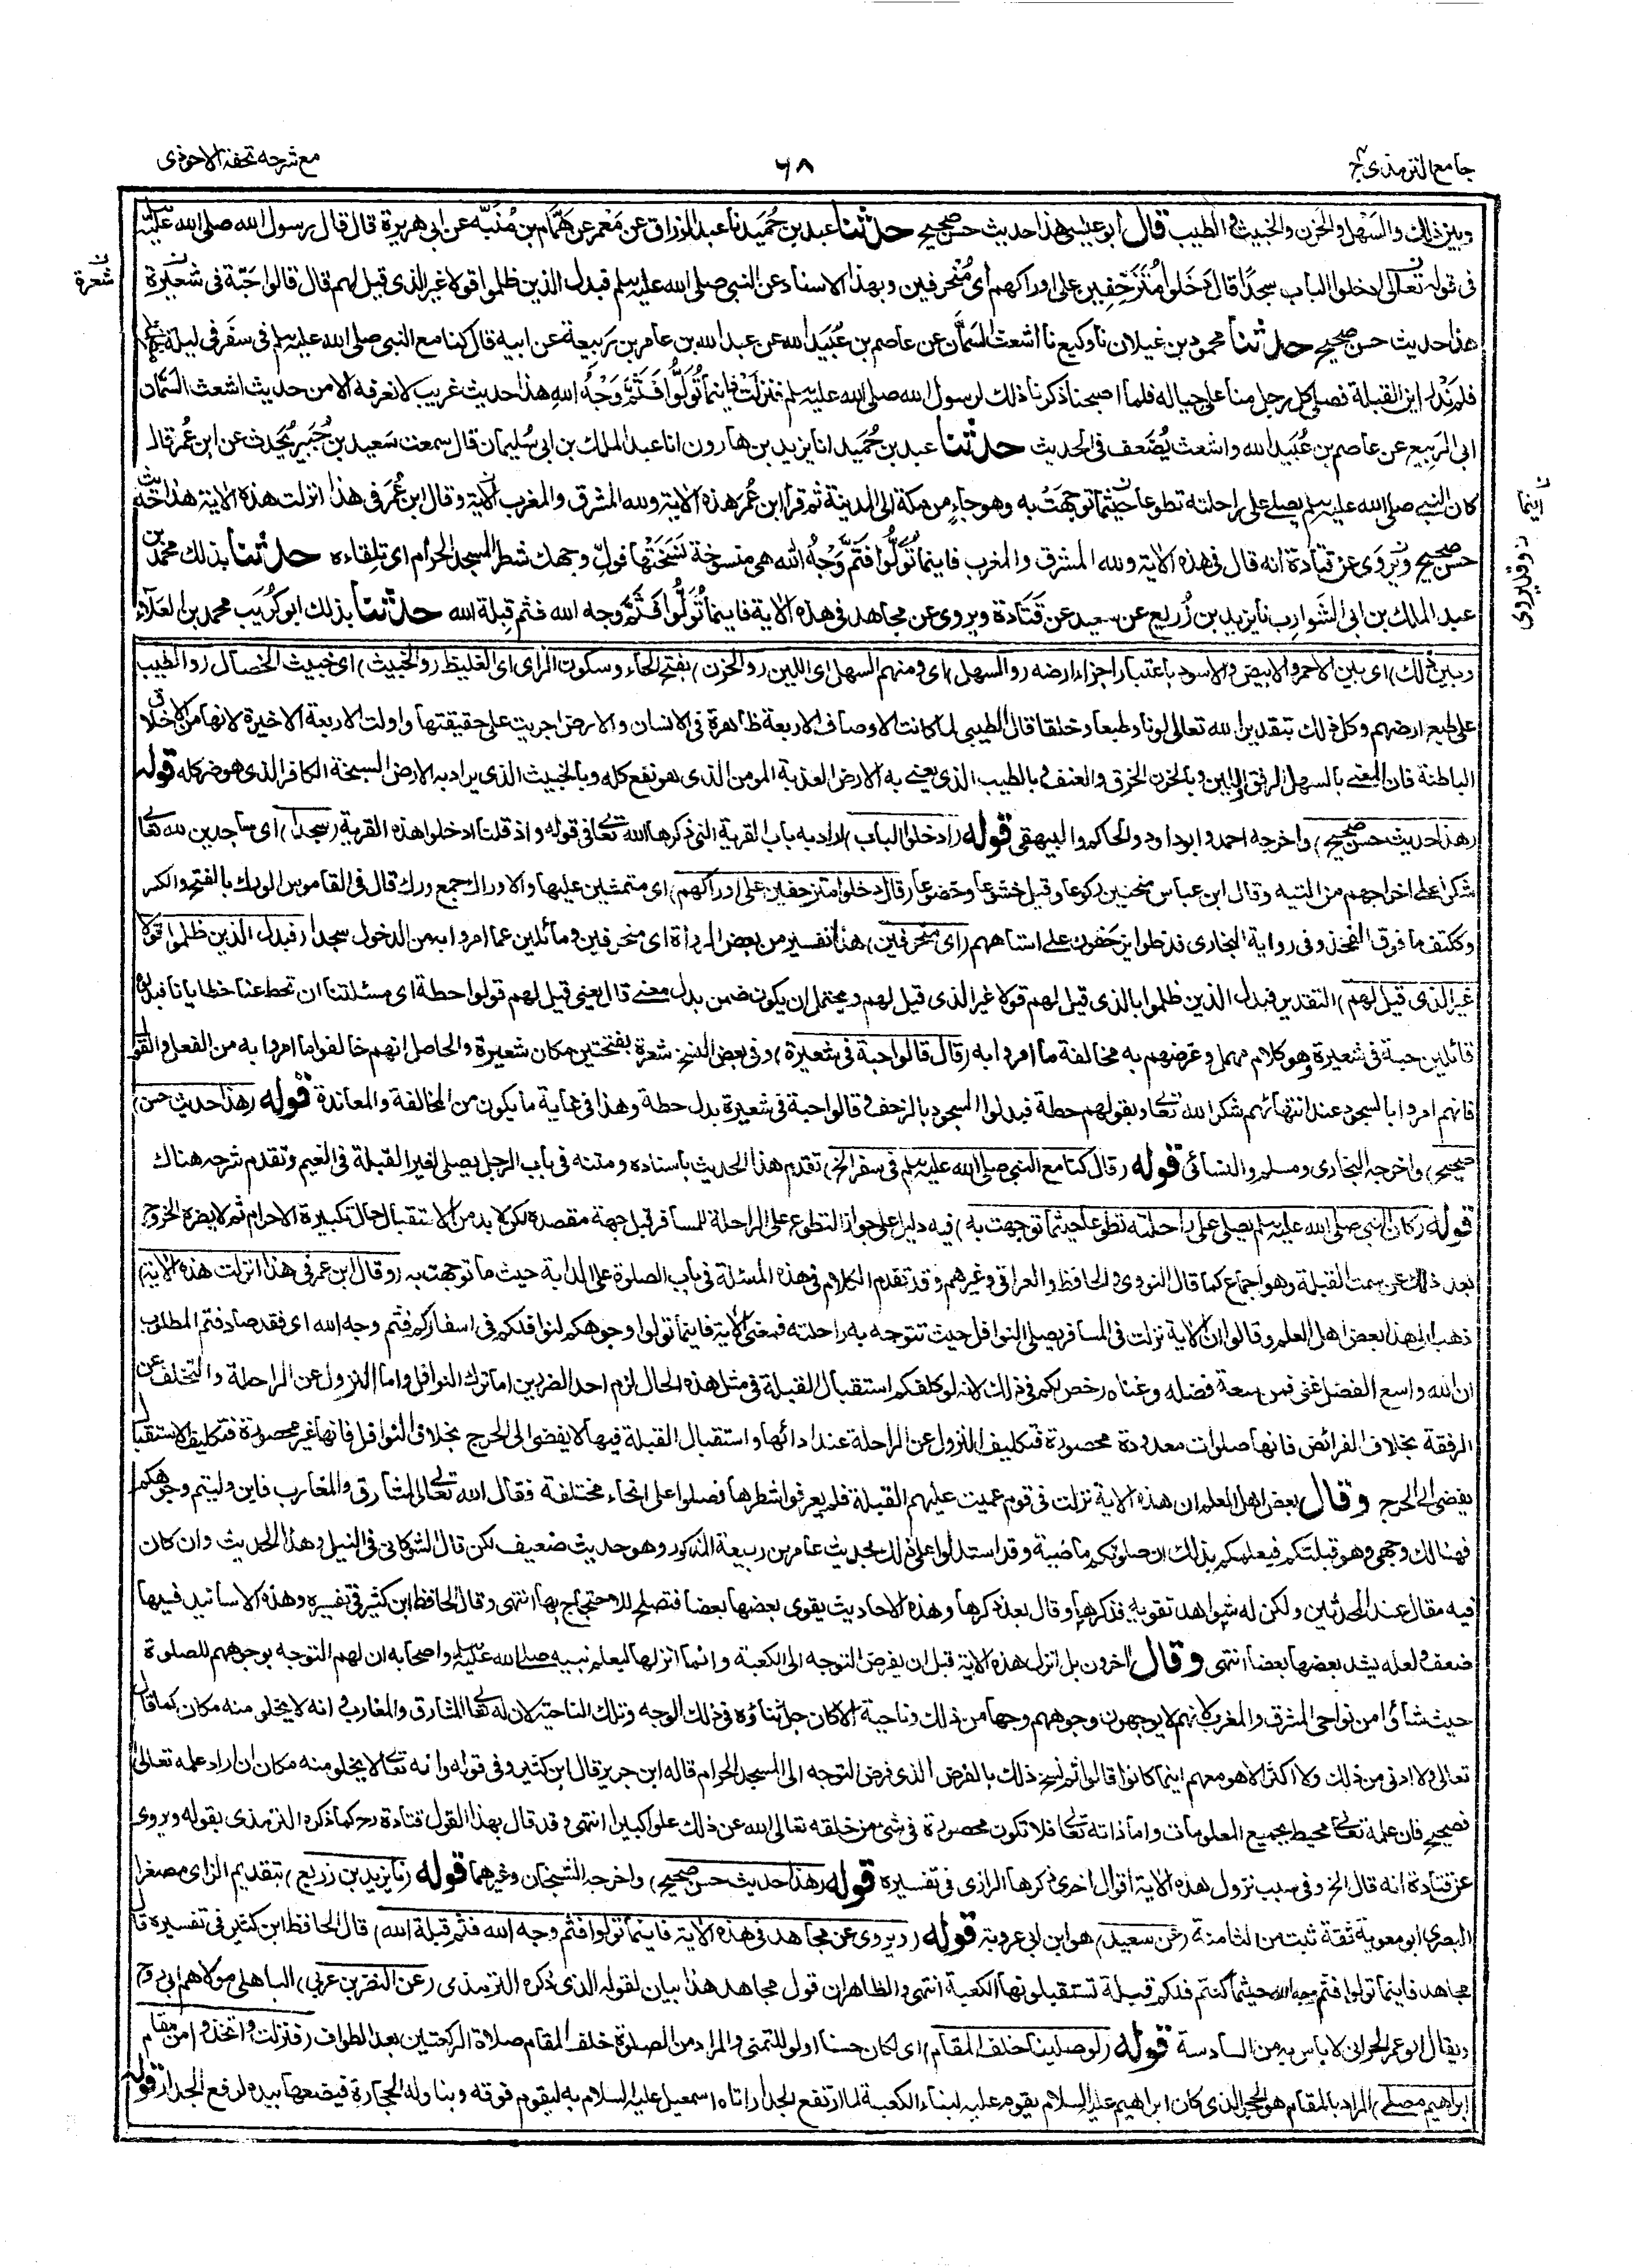 جامع الترمذى ج ٤
٦٨
مع شرحه تحفة الاحوذى
وبين ذلك والسَهْل والحَزن والخبيث والطيب قال أبو عيسى هذا حديث حسن صحيح حدثنا عبد بن حُمَيد نا عبد الرزاق عن مَعْمر عن هَمَّام بن مُنَبِّه عن ابى هريرة قال قال رسول الله صلى الله عليه
فى قوله تعالى ادخلوا الباب سجدًا قال دَخَلوا مُتَزَحِّفِين على اوراكهم أى مُنْحرفين وبهذا الاسناد عن النبى صلى الله عليه وسلم فبدل الذين ظلموا قولا غير الذى قيل لهم قال قالوا حَبّة فى شَعِيْرة
ن شعرة
هذا حديث حسن صحيح حدثنا محمود بن غيلان نا وكيع نا اشعث السَمَّان عن عاصم بن عُبَيد الله عن عبد الله بن عامر بن رَبيعة عن ابيه قال كنا مع النبى صلى الله عليه وسلم فى سفر فى ليلة مظلمة
فلم نَدْرِ اين القبلة فصلى كل رجل منا على حِياله فلما اصبحنا ذكرنا ذلك لرسول الله صلى الله عليه وسلم فنزلت فاينما تُوَلُّوا فَثَمَّ وَجْهُ اللهِ هذا حديث غريب لا نعرفه الا من حديث اشعث السَّمّان
ابى الرَبِيع عن عاصم بن عُبَيد الله واشعث يُضَعف فى الحديث حدثنا عبد بن حُمَيد انا يزيد بن هارون انا عبد الملك بن ابى سُليمان قال سمعت سَعيد بن جُبَير يُحَدث عن ابن عُمر قال
كان النبى صلى الله عليه وسلم يصلى على راحلته تطوعا حيثما توجهَتْ به وهو جاءٍ من مكة الى المدينة ثم قرأ ابن عُمَر هذه الآية ولله المشرق والمغرب الآية وقال ابن عُمَر فى هذا انزلت هذه الآية هذا حديث
ن اينما
حسن صحيح ويُرْوَى عن قتادة انه قال فى هذه الآية ولله المشرق والمغرب فاينما تُوَلُّوا فَثَمَّ وَجْهُ الله هى منسوخة نَسَخَتْها فولِّ وجهك شطر المسجد الحرام اى تِلقاءه حدثنا بذلك محمد بن
ن وقد يروى
عبد الملك بن ابى الشَوارِب نا يزيد بن زُرَيع عن سعيد عن قَتَادة ويروى عن مجاهد فى هذه الآية فاينما تُوَلُّوا فَثَمَّ وجه الله فثم قِبلة الله حدثنا بذلك ابو كُرَيب محمد بن العَلَاء
وبين ذلك) اى بين الاحمر والابيض والاسود باعتبار اجزاء ارضه (والسهل) اى ومنهم السهل اى اللين (والحزن) بفتح الحاء وسكون الزاى اى الغليظ (والخبيث) اى خبيث الخصال (والطيب
على طبع ارضهم وكل ذلك بتقدير الله تعالى لونا وطبعا وخلقا قال الطيبى لما كانت الاوصاف الاربعة ظاهرة فى الانسان والارض اجريت على حقيقتها واولت الاربعة الاخيرة لانها من الاخلاق
الباطنة فان المعنى بالسهل الرفق واللين وبالحزن الخرق والعنف وبالطيب الذى يعنى به الارض العذبة المومن الذى هو نفع كله وبالخبيث الذى يراد به الارض السبخة الكافر الذى هو ضر كله قوله
(هذا حديث حسن صحيح) واخرجه احمد وابو داود والحاكم والبيهقى قوله (ادخلوا الباب) المراد به باب القرية التى ذكرها الله تعالى فى قوله واذ قلنا ادخلوا هذه القرية (سجدا) اى ساجدين لله تعالى
شكرا على اخراجهم من التيه وقال ابن عباس منحنين ركوعا وقيل خشوعا وخضوعا (قال دخلوا متزحفين على اوراكهم) اى متمشين عليها والاوراك جمع ورك قال فى القاموس الورك بالفتح والكسر
وككتف ما فوق الفخذ وفى رواية البخارى فدخلوا يزحفون على استاههم (اى منحرفين) هذا تفسير من بعض الرواة اى منحرفين ومائلين عما امروا به من الدخول سجدا (فبدل الذين ظلموا قولا
غير الذى قيل لهم) التقدير فبدل الذين ظلموا بالذى قيل لهم قولا غير الذى قيل لهم ويحتمل ان يكون ضمن بدل معنى قال يعنى قيل لهم قولوا حطة اى مسئلتنا ان تحط عنا خطايانا فبدلوا
قائلين حبة فى شعيرة وهو كلام مهمل وغرضهم به مخالفة ما امروا به (قال قالوا حبة فى شعيرة) وفى بعض النسخ شعرة بفتحتين مكان شعيرة والحاصل انهم خالفوا ما امروا به من الفعل والقول
فانهم امروا بالسجود عند انتهائهم شكرا لله تعالى وبقولهم حطة فبدلوا السجود بالزحف وقالوا حبة فى شعيرة بدل حطة وهذا فى غاية ما يكون من المخالفة والمعاندة قوله (هذا حديث حسن
صحيح) واخرجه البخارى ومسلم والنسائى قوله (قال كنا مع النبى صلى الله عليه وسلم فى سفر الخ) تقدم هذا الحديث باسناده ومتنه فى باب الرجل يصلى لغير القبلة فى الغيم وتقدم شرحه هناك
قوله (كان النبى صلى الله عليه وسلم يصلى على راحلته تطوعا حيثما توجهت به) فيه دليل على جواز التطوع على الراحلة للمسافر قبل جهة مقصده لكن لا بد من الاستقبال حال تكبيرة الاحرام ثم لا يضره الخروج
بعد ذلك عن سمت القبلة وهو اجماع كما قال النووى والحافظ والعراقى وغيرهم وقد تقدم الكلام فى هذه المسئلة فى باب الصلوة على الدابة حيث ما توجهت به (وقال ابن عمر فى هذا انزلت هذه الآية)
ذهب الى هذا بعض اهل العلم وقالوا ان الآية نزلت فى المسافر يصلى النوافل حيث تتوجه به راحلته فمعنى الآية فاينما تولوا وجوهكم لنوافلكم فى اسفاركم فثم وجه الله اى فقد صادفتم المطلوب
ان الله واسع الفضل غنى فمن سعة فضله وغناه رخص لكم فى ذلك لانه لو كلفكم استقبال القبلة فى مثل هذه الحال لزم احد الضررين اما ترك النوافل واما النزول عن الراحلة والتخلف عن
الرفقة بخلاف الفرائض فانها صلوات معدودة محصورة فتكليف النزول عن الراحلة عند ادائها واستقبال القبلة فيها لا يفضى الى الحرج بخلاف النوافل فانها غير محصورة فتكليف الاستقبال
يفضى الى الحرج وقال بعض اهل العلم ان هذه الآية نزلت فى قوم عميت عليهم القبلة فلم يعرفوا شطرها فصلوا على انحاء مختلفة فقال الله تعالى لى المشارق والمغارب فاين وليتم وجوهكم
فهنالك وجهى وهو قبلتكم فيعلمكم بذلك ان صلوتكم ماضية وقد استدلوا على ذلك بحديث عامر بن ربيعة المذكور وهو حديث ضعيف لكن قال الشوكانى فى النيل وهذا الحديث وان كان
فيه مقال عند المحدثين ولكن له شواهد تقويه فذكرها وقال بعد ذكرها وهذه الاحاديث يقوى بعضها بعضا فتصلح للاحتجاج بها انتهى وقال الحافظ ابن كثير فى تفسيره وهذه الاسانيد فيها
ضعف ولعله يشد بعضها بعضا انتهى وقال آخرون بل انزل هذه الآية قبل ان يفرض التوجه الى الكعبة وانما انزلها ليعلم نبيه صلى الله عليه وسلم واصحابه ان لهم التوجه بوجوههم للصلوة
حيث شاؤا من نواحى المشرق والمغرب لانهم لا يوجهون وجوههم وجها من ذلك وناحية الا كان جل ثناؤه فى ذلك الوجه وتلك الناحية لان له تعالى المشارق والمغارب وانه لا يخلو منه مكان كما قال
تعالى ولا ادنى من ذلك ولا اكثر الا هو معهم اينما كانوا قالوا ثم نسخ ذلك بالفرض الذى فرض التوجه الى المسجد الحرام قاله ابن جرير قال ابن كثير وفى قوله وانه تعالى لا يخلو منه مكان ان اراد علمه تعالى
فصحيح فان علمه تعالى محيط بجميع المعلومات واما ذاته تعالى فلا تكون محصورة فى شئ من خلقه تعالى الله عن ذلك علوا كبيرا انتهى وقد قال بهذا القول قتادة رح كما ذكره الترمذى بقوله ويروى
عن قتادة انه قال الخ وفى سبب نزول هذه الآية اقوال اخرى ذكرها الرازى فى تفسيره قوله (هذا حديث حسن صحيح) واخرجه الشيخان وغيرهما قوله (نا يزيد بن زريع) بتقديم الزاى مصغرا
البصرى ابو معوية ثقة ثبت من الثامنة (عن سعيد) هو ابن ابى عروبة قوله (ويروى عن مجاهد فى هذه الآية فاينما تولوا فثم وجه الله فثم قبلة الله) قال الحافظ ابن كثير فى تفسيره قال
مجاهد فاينما تولوا فثم وجه الله حيثما كنتم فلكم قبلة تستقبلونها الكعبة انتهى والظاهر ان قول مجاهد هذا بيان لقوله الذى ذكره الترمذى (عن النضر بن عربى) الباهلى مولاهم ابى روح
ويقال ابو عمر الحرانى لا باس به من السادسة قوله (لو صلينا خلف المقام) اى لكان حسنا او لو للتمنى والمراد من الصلوة خلف المقام صلاة الركعتين بعد الطواف (فنزلت واتخذوا من مقام
ابراهيم مصلى) المراد بالمقام هو الحجر الذى كان ابراهيم عليه السلام يقوم عليه لبناء الكعبة لما ارتفع الجدار اتاه اسمعيل عليه السلام به ليقوم فوقه ويناوله الحجارة فيضعها بيده لرفع الجدار قوله